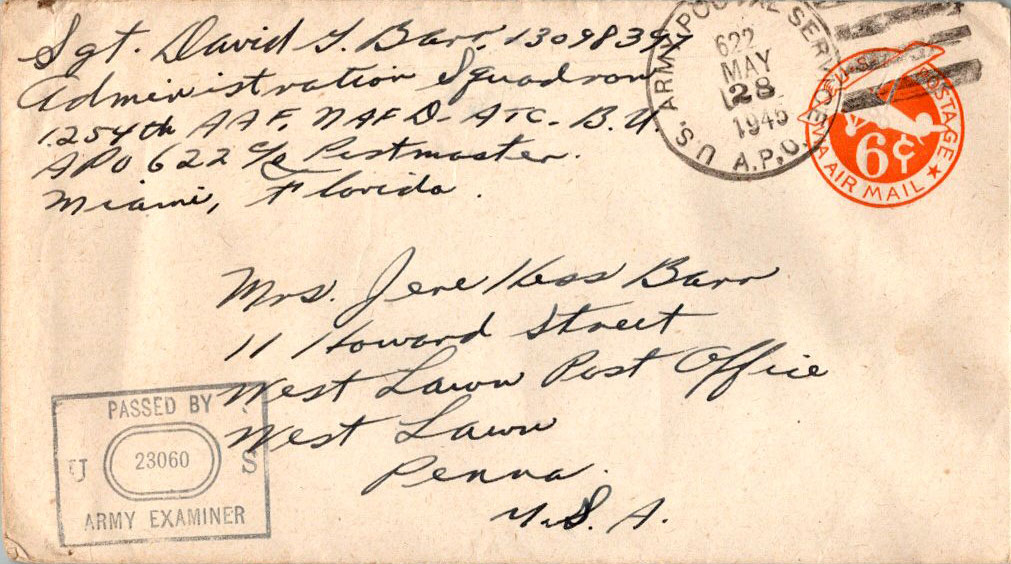 Sgt. David G. Barr, 13098397
Administration Squadron
1254th AAF, NAFD-ATC-B.U.
APO 622 c/o Postmaster.
Miami, Florida.
U.S. ARMY POSTAL SERVICE
622
MAY
28
1945
A.P.O.
U.S. POSTAGE
6¢
VIA AIR MAIL
Mrs. Jere Hess Barr
11 Howard Street
West Lawn Post Office
West Lawn
Penna.
U.S.A.
PASSED BY
U 23060 S
ARMY EXAMINER